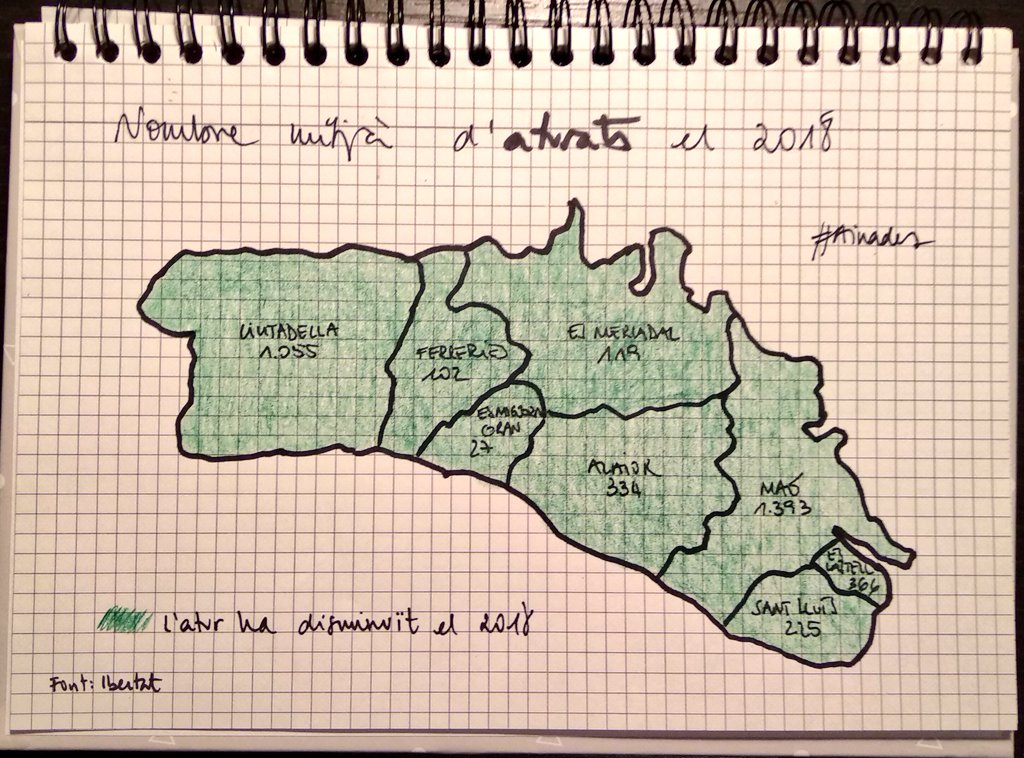 Nombre mitjà d'aturats el 2018
#Ainades
CIUTADELLA
1.055
FERRERIES
102
ES MERCADAL
119
ES MIGJORN
GRAN
27
ALAIOR
334
MAÓ
1.393
ES
CASTELL
364
SANT LLUÍS
225
L'atur ha disminuït el 2018
Font: Ibestat